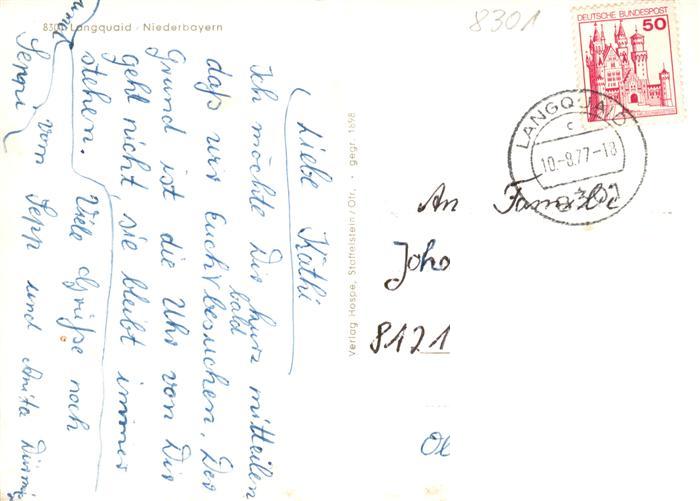 8301 Langquaid · Niederbayern
Liebe Käthi
Ich möchte Dir kurz mitteilen
daß wir Euch bald besuchen. Der
Grund ist die Uhr von Dir
geht nicht, sie bleibt immer
stehen.
Viele Grüße noch
vom Sepp und Anita
Seppi
Verlag Hospe, Staffelstein/Ofr. · gegr. 1698
8301
DEUTSCHE BUNDESPOST
50
LANGQUAID
c
10.-8.77-18
8301
An Familie
Joho
8121